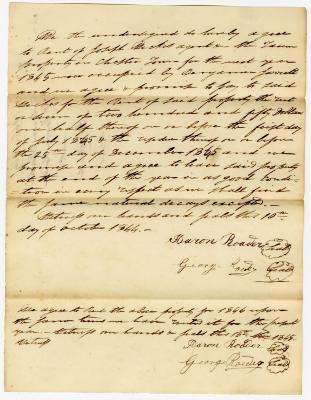 We the undersigned do hereby agree
to Rent of Joseph agent for the
property in Chester Town for the next year
1845 now occupied by Benjamin
and we agree & promise to pay to said
for the Rent of said property the
sum of two hundred and fifty dollars
one half thereof on or before the first day
of July 1845 & the residue thereof on or before
the 25th day of December 1845 and we
promise and agree to leave said property
at the end of the year in as good condi-
tion in every respect as we shall find
the same natural decays excepted.
Witness our hands and seals this 15th
day of October 1844.
Aaron Roader Seal
George Roader Seal
We agree to rent the above property for 1846 upon
the same terms we have rented it for the present
year. Witness our hands & seals this 1845
Aaron Roader Seal
George Roader Seal